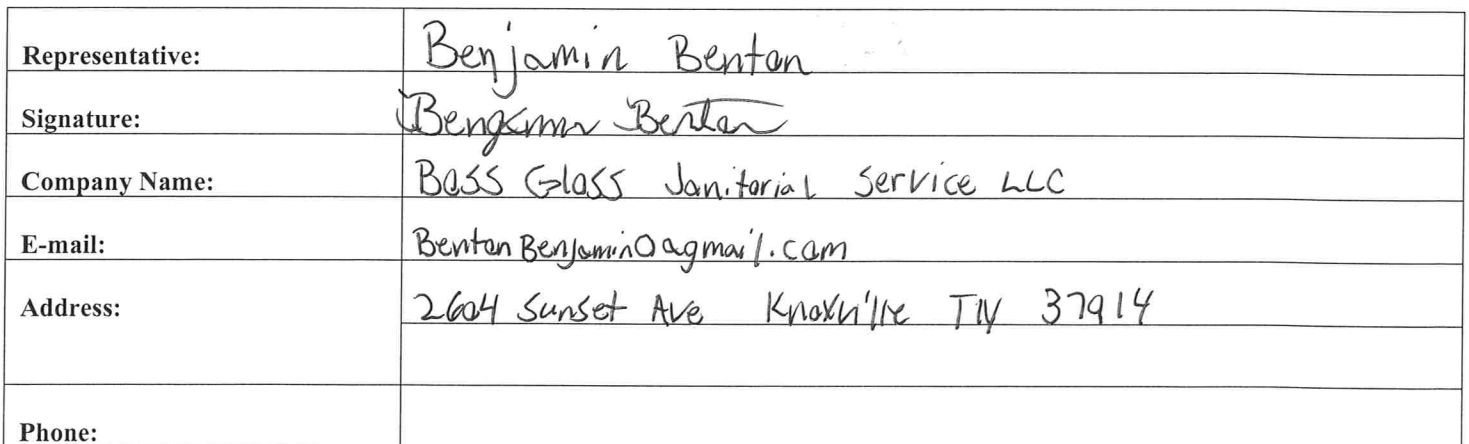 Representative: Benjamin Benton
Signature: Benjamin Benton
Company Name: Boss Gloss Janitorial Service LLC
E-mail: BentonBenjamin0@gmail.com
Address: 2604 Sunset Ave Knoxville TN 37914
Phone: